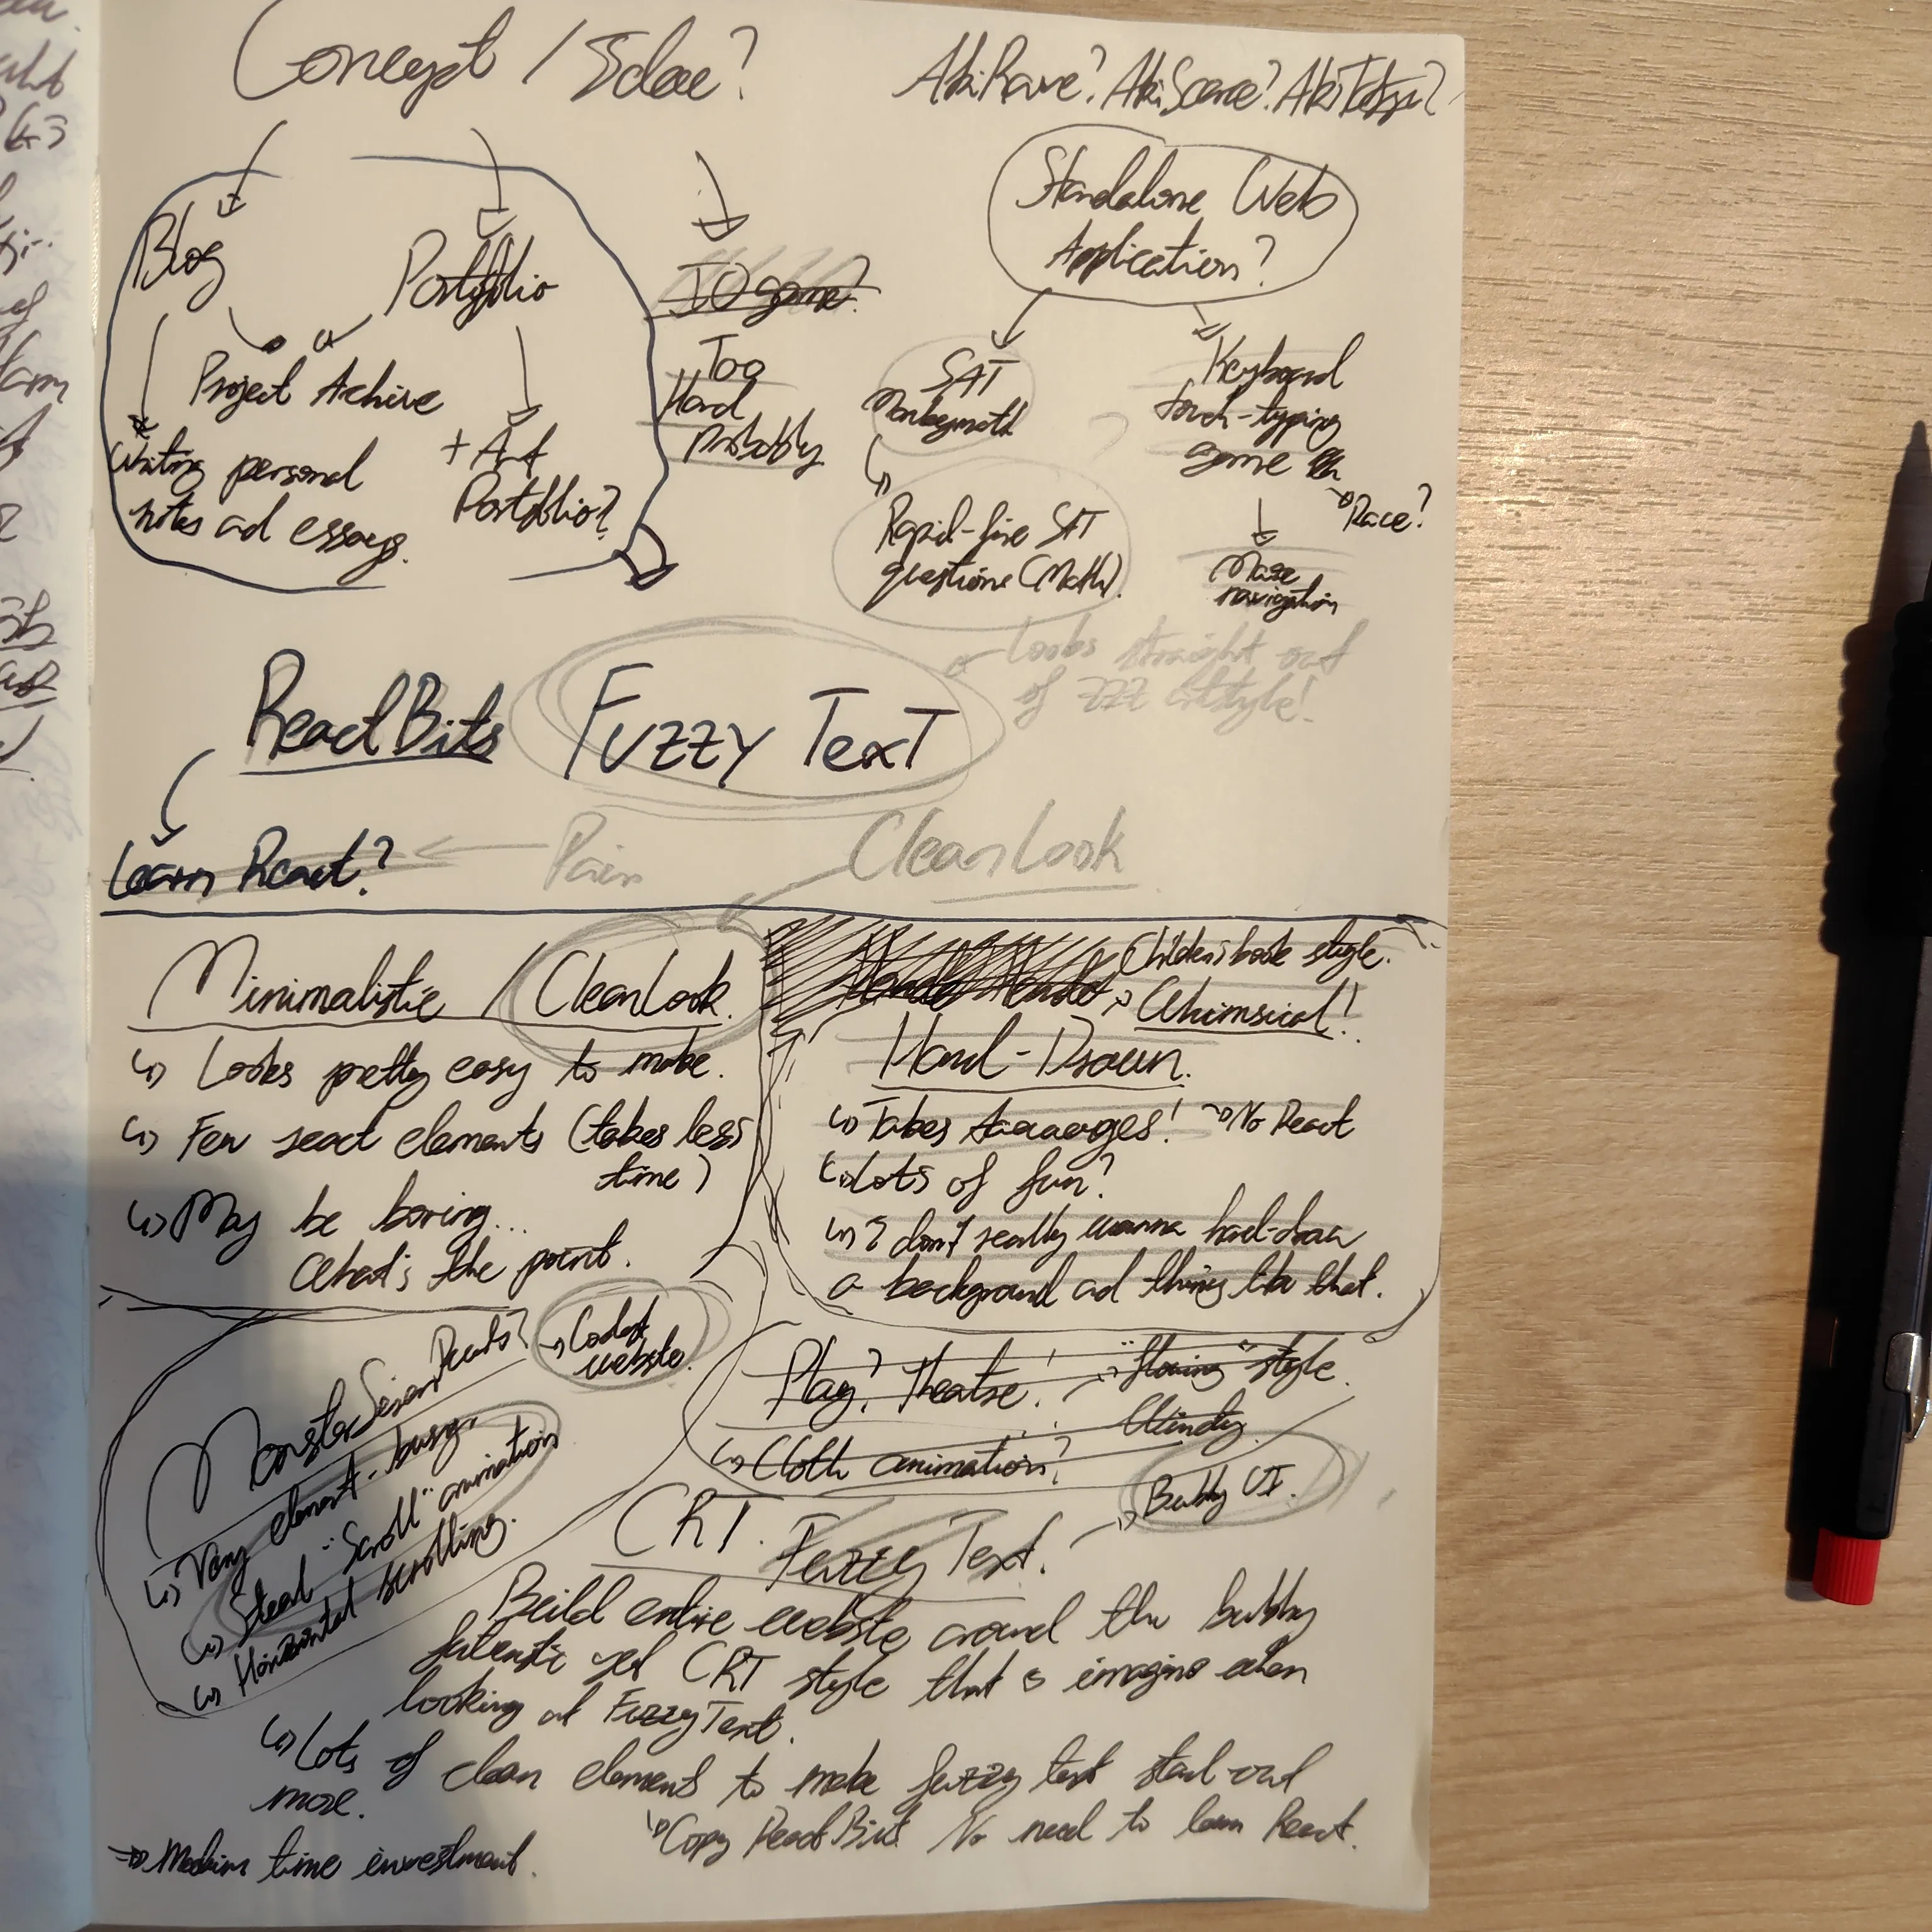 Concept / Idea?
AkiRave? AkiScore? AkiTetsu?
Blog
Portfolio
Project Achive
Writing personal
notes ad essays.
+ Art
Portfolio?
IO game?
Too
Hard
probably
Standalone Web
Application?
SAT
Monkeymath
Rapid-fire SAT
questions (Math).
Keyboard
touch-typing
game
Race?
Maze
navigation
React Bits
Fuzzy Text
Looks straight out
of ZZZ artstyle!
Learn React?
Pain
Clean Look
Minimalistic / Clean Look.
Looks pretty easy to make.
Few react elements (takes less
time)
May be boring...
What's the point.
Children's book style.
Whimsical!
Hand-Drawn.
Takes aaaages! No React
Lots of fun?
I don't really wanna hand-draw
a background ad things like that.
Monster Siren Records?
Coolest
website.
Very element-busy.
Steal "Scroll" animation
Horizontal scrolling.
Play? Theatre! "flowing" style.
Windy.
Cloth animation?
CRT. Fuzzy Text.
Bubbly UI.
Build entire website around the bubbly
futuristic yet CRT style that is imagine when
looking at FuzzyText.
Lots of clean elements to make fuzzy text stand-out
more.
Copy React Bits. No need to learn React.
Medium time investment.